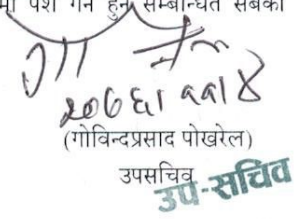 पेश गर्न हुन सम्बन्धित सबैको
२०७६।११।४
(गोविन्दप्रसाद पोखरेल)
उपसचिव
उप-सचिव